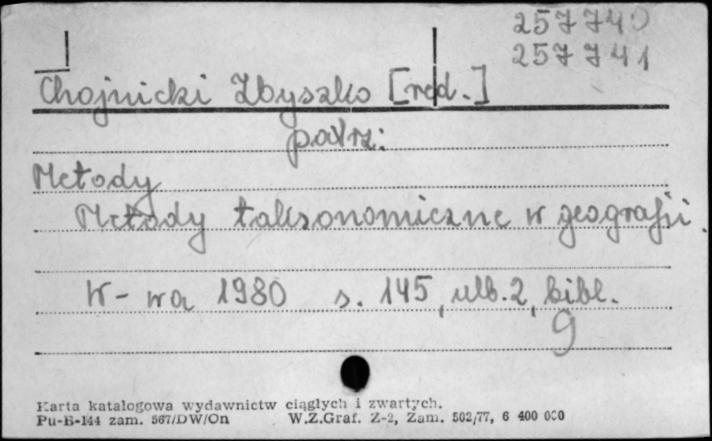 257740
257741
Chojnicki Zbyszko [red.]
patrz:
Metody
Metody taksonomiczne w geografii.
W-wa 1980 s. 145, ulb. 2, bibl.
9
Karta katalogowa wydawnictw ciągłych i zwartych.
Pu-B-144 zam. 567/DW/On W.Z.Graf. Z-2, Zam. 502/77, 6 400 000